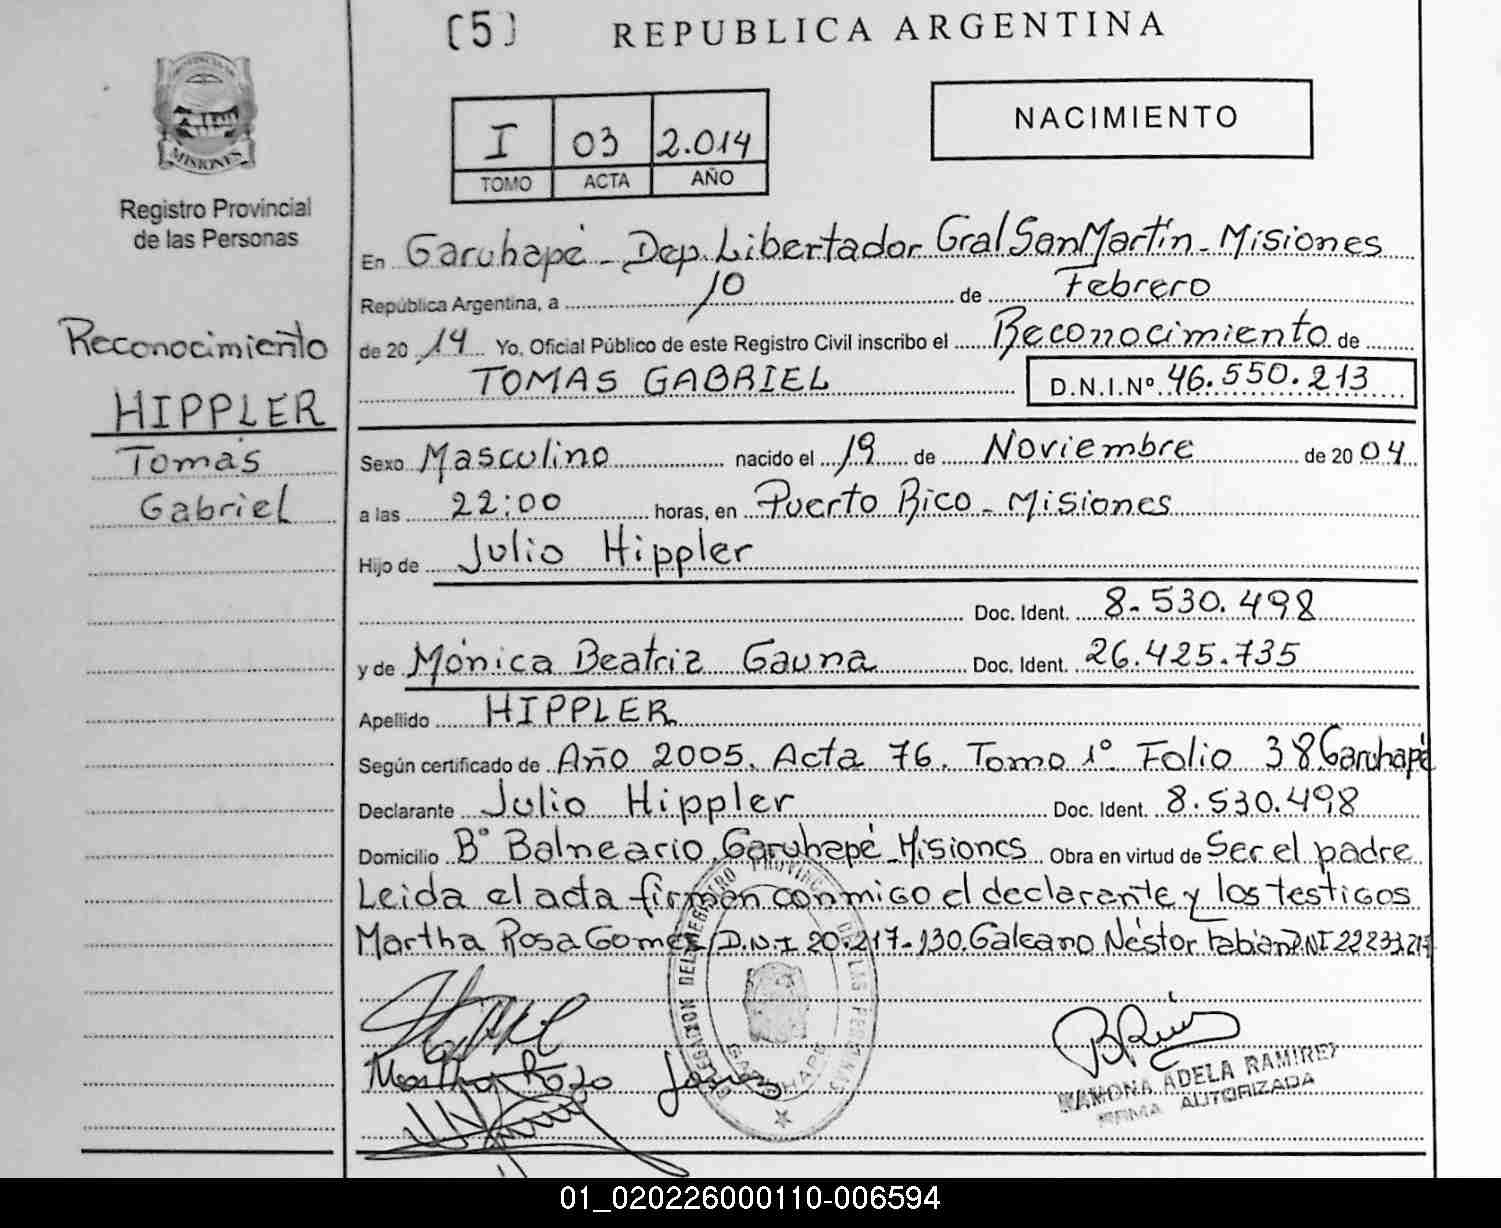 (5) REPUBLICA ARGENTINA
NACIMIENTO
I 03 2.014
TOMO ACTA AÑO
MISIONES
Registro Provincial
de las Personas
Reconocimiento
HIPPLER
Tomás
Gabriel
En Garuhapé - Dep. Libertador Gral San Martín - Misiones
República Argentina, a 10 de Febrero
de 20 14 Yo, Oficial Público de este Registro Civil inscribo el Reconocimiento de
TOMAS GABRIEL D.N.I.Nº 46.550.213
Sexo Masculino nacido el 19 de Noviembre de 20 04
a las 22:00 horas, en Puerto Rico - Misiones
Hijo de Julio Hippler
Doc. Ident. 8.530.498
y de Mónica Beatriz Gauna Doc. Ident. 26.425.735
Apellido HIPPLER
Según certificado de Año 2005. Acta 76. Tomo 1º Folio 38 Garuhapé
Declarante Julio Hippler Doc. Ident. 8.530.498
Domicilio Bº Balneario Garuhapé - Misiones Obra en virtud de Ser el padre
Leida el acta firman conmigo el declarante y los testigos
Martha Rosa Gomes D.N.I 20.217.130. Galeano Néstor Fabian D.NI
Martha Rosa
RAMONA ADELA RAMIREZ
FIRMA AUTORIZADA
DELEGACION DEL REGISTRO PROVINCIAL DE LAS PERSONAS
GARUHAPE
01_020226000110-006594